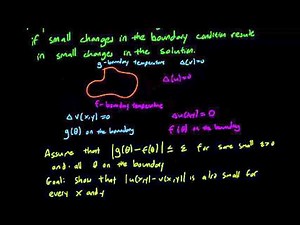 if small changes in the boundary condition result
in small changes in the solution.
g-boundary temperature Δ(v)=0
Δ(u)=0
f-boundary temperature
Δv(x,y)=0 Δu(x,y)=0
g(θ) on the boundary f(θ) on the boundary
Assume that |g(θ)-f(θ)| ≤ ε for some small ε>0
and all θ on the boundary
Goal: show that |u(x,y)-v(x,y)| is also small for
every x and y